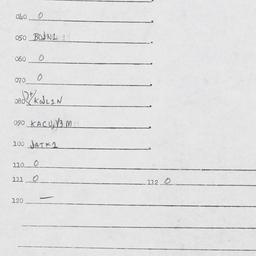 040 0
050 BWN1
060 0
070 0
080 KWL1N
090 KACY/3M
100 JATK1
110 0
111 0 112 0
120 —